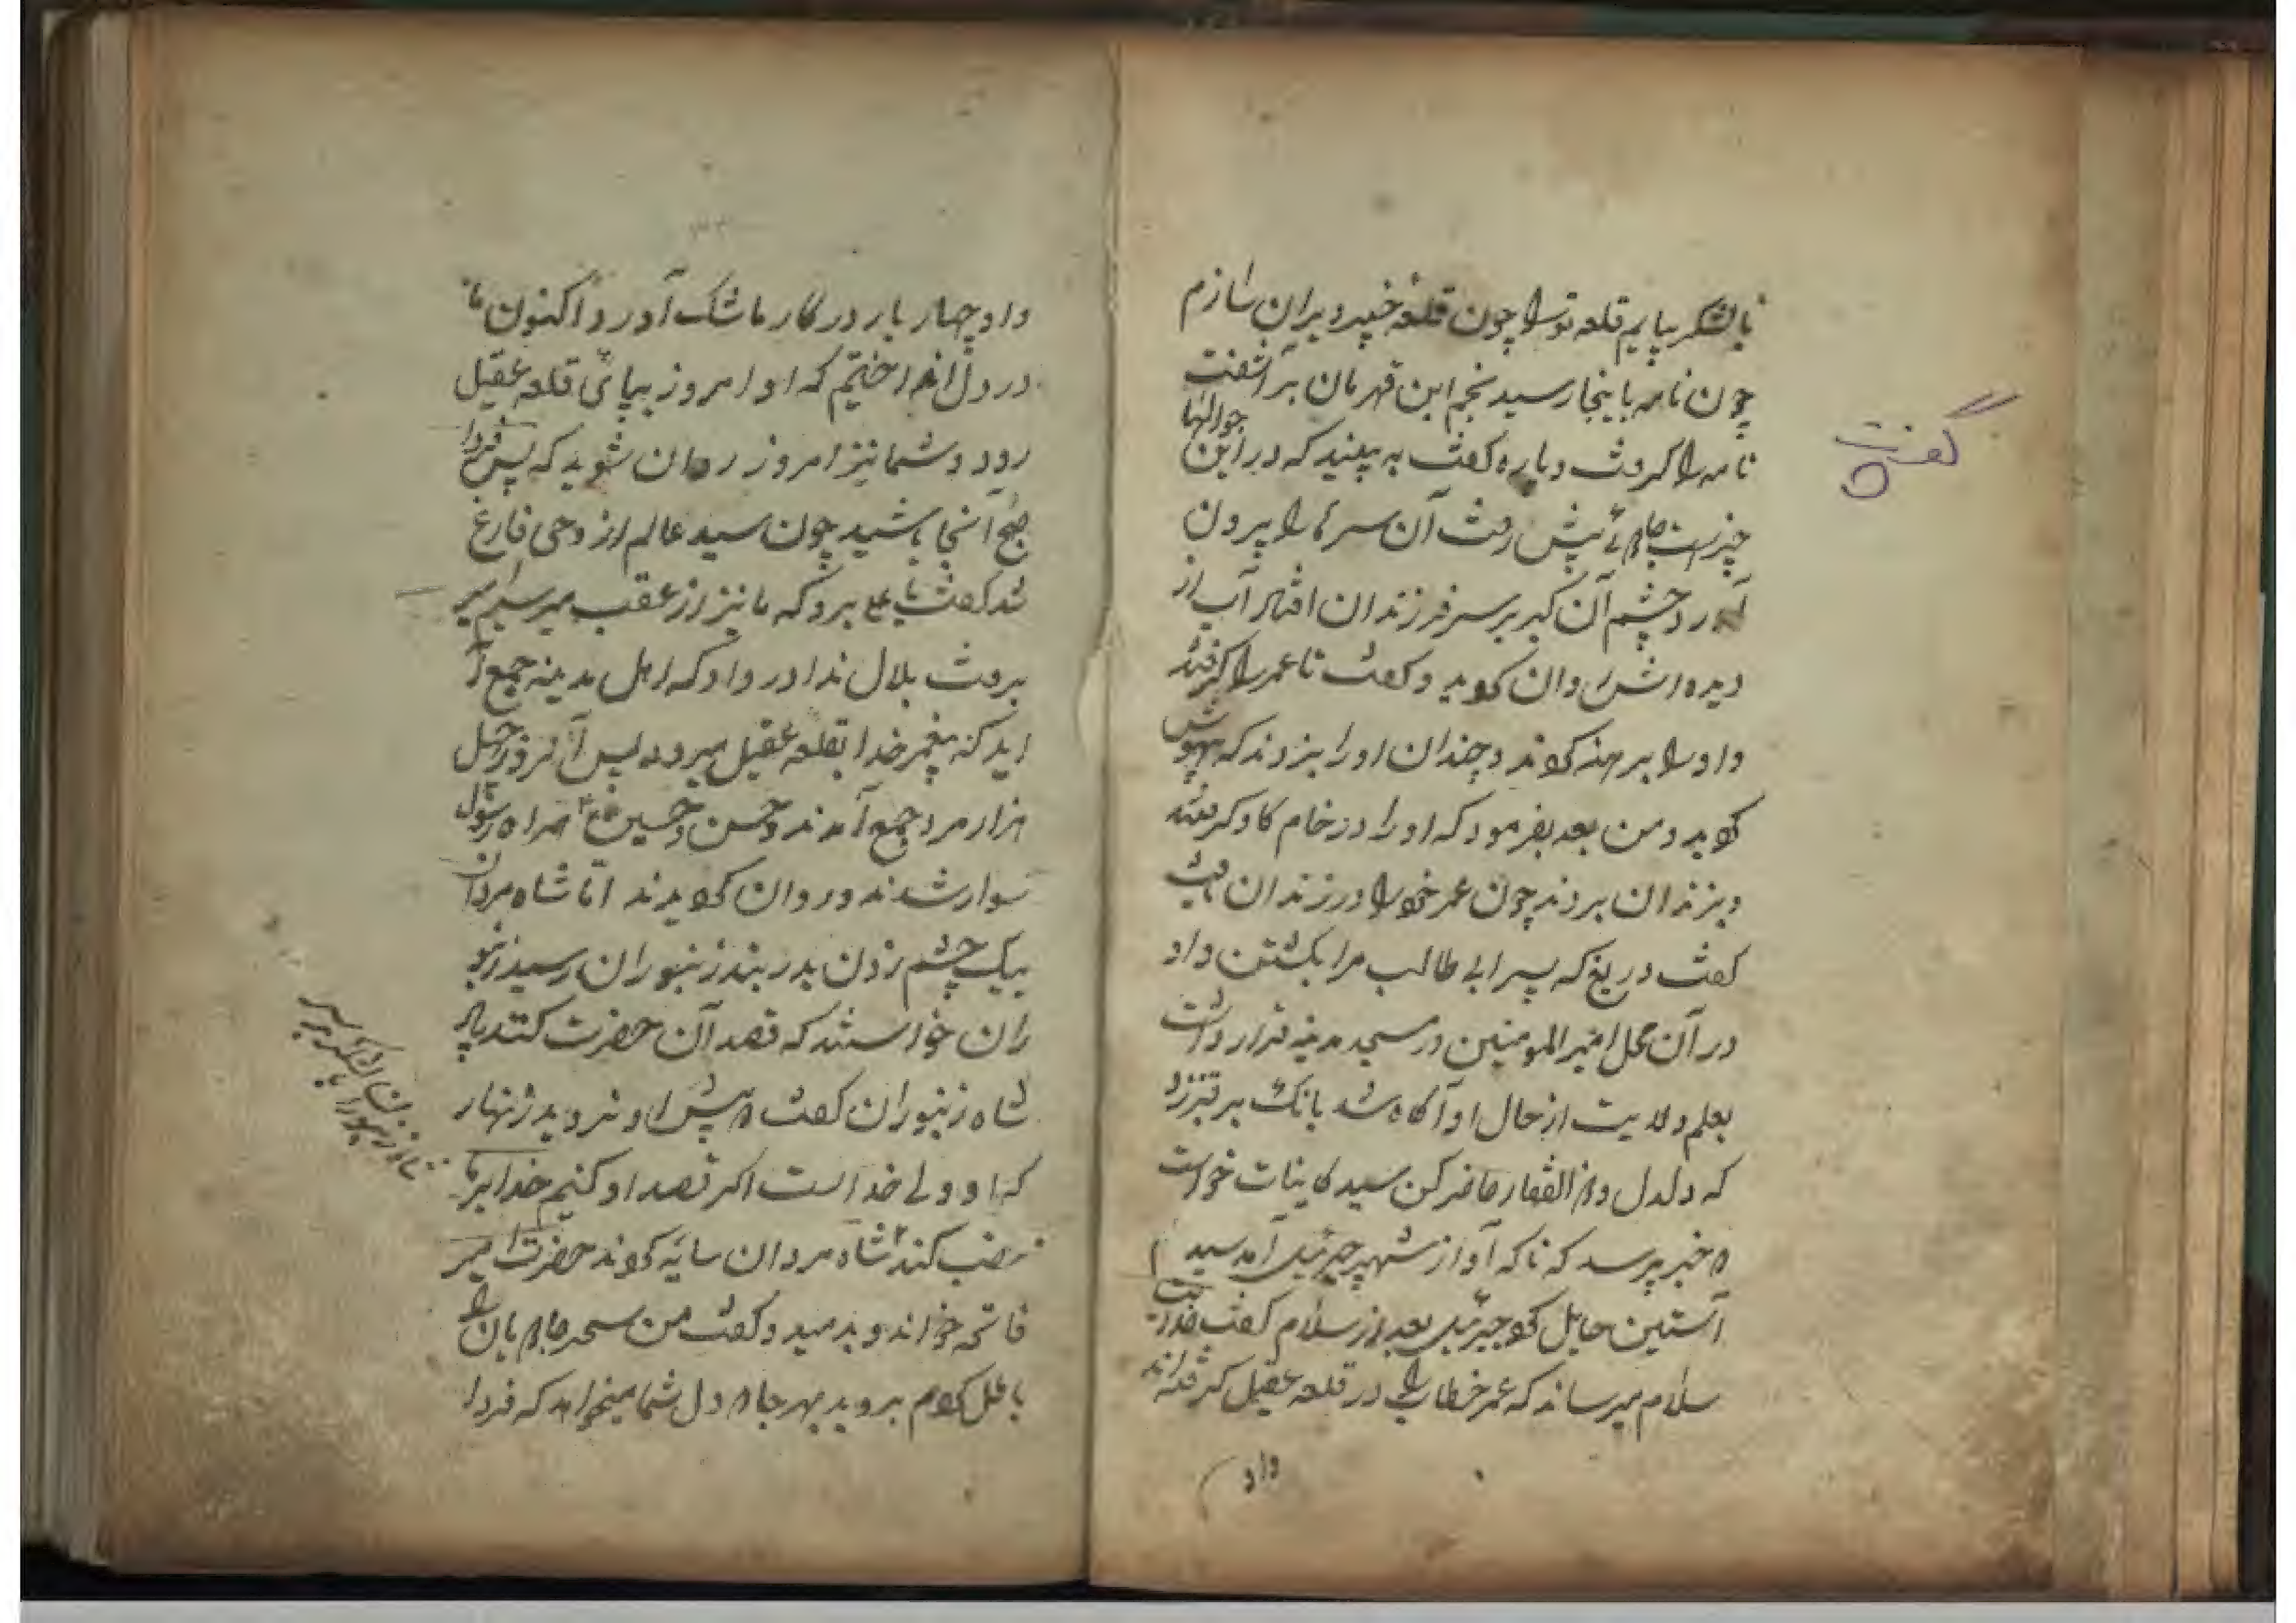 با لشکر بیایم قلعه تو را چون قلعه خیبر ویران سازم
چون نامه باینجا رسید نجم ابن قهرمان بر آشفت
نامه را کرفت و پاره کفت به بینید که در این جوالها
چیزست جامه پیش رفت آن سرها را بیرون
آورد چشم آن کبر بر سر فرزندان افتاد آب از
دیده اش روان کردید و کفت تا عمر را کرفتند
و او را برهنه کردند و چندان او را بزدند که بیهوش
کردید و من بعد بفرمود که او را در خام کاو کرفته
و بزندان بردند چون عمر خود را در زندان یافت
کفت دریغ که پسر ابی طالب مرا بکشتن داد
در آن محل امیر المومنین در مسجد مدینه قرار داشت
بعلم ولایت از حال او آکاه شد بانک بر قنبر زد
که دلدل و ذو الفقار حاضر کن سید کاینات خواست
خبر پرسد که ناکه آواز شهپر جبرئیل آمد سید
آستین حایل کرد جبرئیل بعد از سلام کفت خدایت
سلام میرساند که عمر خطاب را در قلعه عقیل کرفته اند
داد
کفت
داد چهار بار در کار ما شک آورد اکنون ما
در دل انداختیم که او امروز بپای قلعه عقیل
رود و شما نیز امروز روان شوید که پس فردا
صبح آنجا باشید چون سید عالم از وحی فارغ
شد کفت یا علی برو که ما نیز از عقب میرسیم امیر
برفت بلال ندا در داد که اهل مدینه جمع آ
یید که پیغمبر خدا بقلعه عقیل میرود پس آنروز چهل
هزار مرد جمع آمدند و حسن و حسین همراه رسول
سوار شدند و روان کردیدند اما شاه مردان
بیک چشم زدن بدربند زنبوران رسید زنبو
ران خواستند که قصد آن حضرت کنند پاد
شاه زنبوران کفت پیش او نروید زنهار
که او ولی خداست اکر قصد او کنیم خدا بر ما
غضب کند شاه مردان سایه کردند حضرت امیر
فاتحه خواند و بدمید و کفت من سحر جام بان را
باطل کردم بروید بهر جا که دل شما میخواهد که فردا